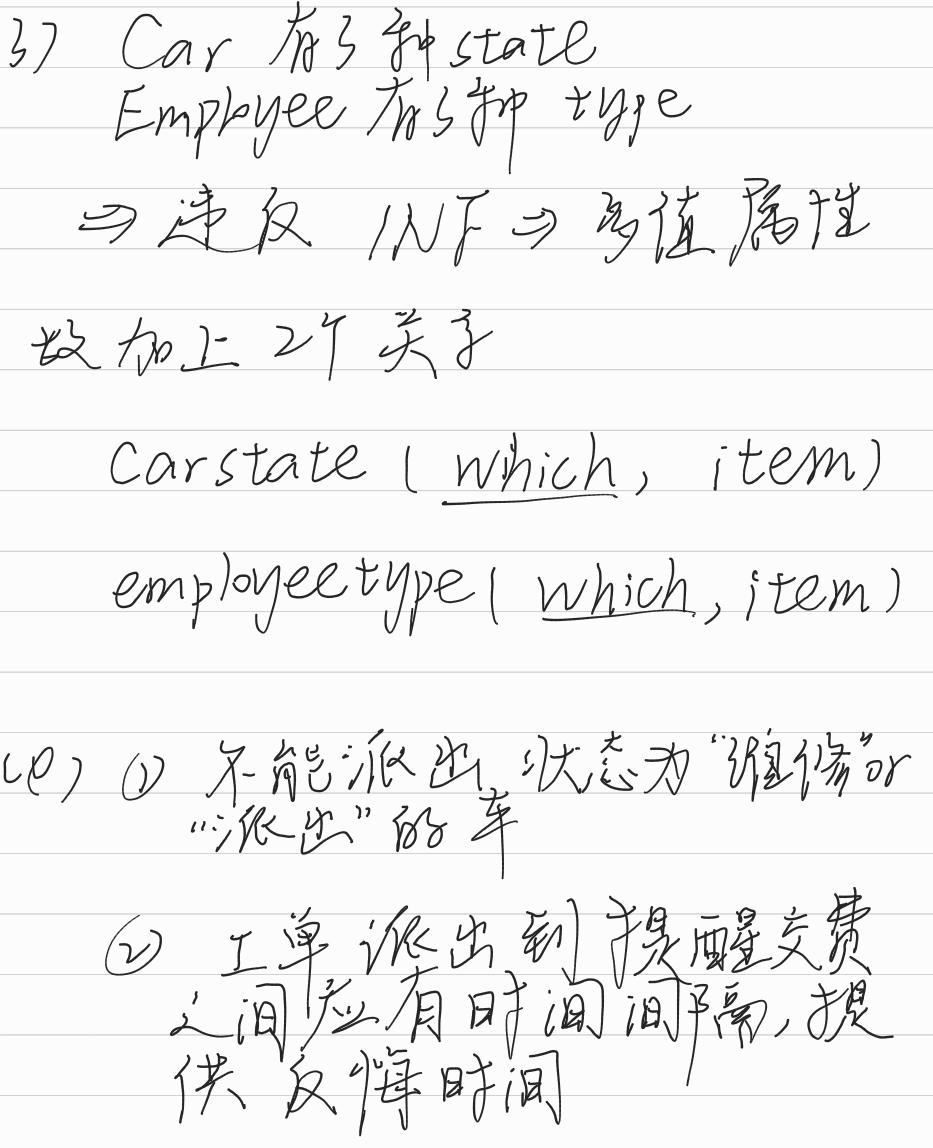 3) Car 有3种state
Employee 有3种 type
⇒ 违反 1NF ⇒ 多值属性
故加上 2个关系
Carstate ( which, item)
employeetype( which, item)
(4) ① 不能派出 状态为 "维修"or
"派出" 的车
② 工单派出到提醒交费
之间应有时间间隔, 提
供反悔时间